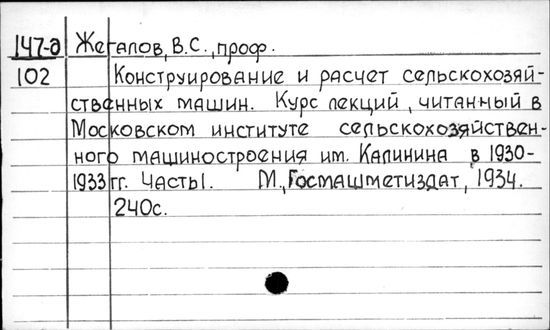 147-д Жегалов, В.С., проф.
102 Конструирование и расчет сельскохозяй-
ственных машин. Курс лекций, читанный в
Московском институте сельскохозяйствен-
ного машиностроения им. Калинина в 1930-
1933 гг. Часть I. М., Госмашметиздат, 1934.
240с.